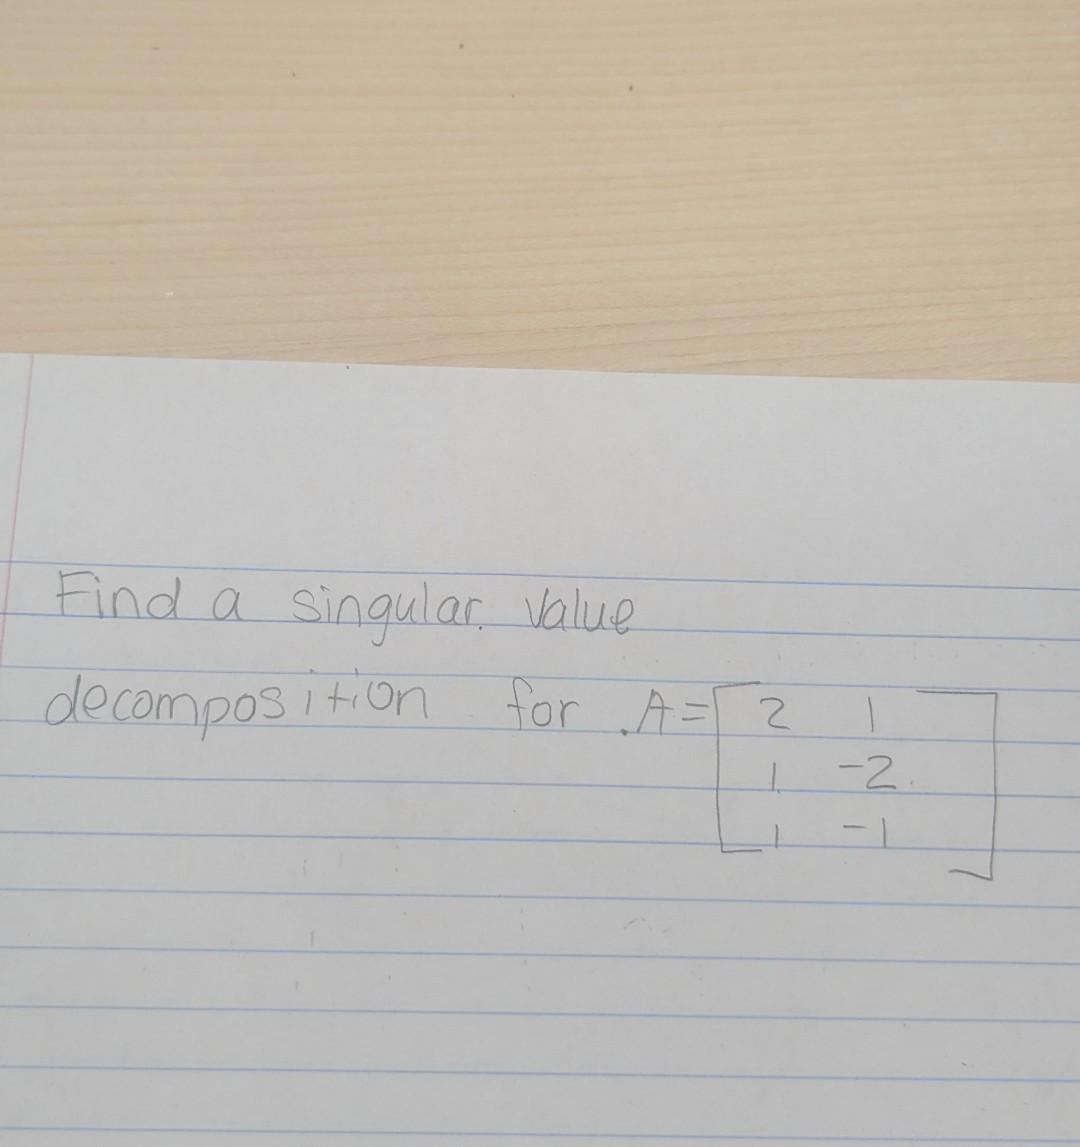 Find a singular. Value
decomposition for .A=[2 1
1 -2
1 -1]